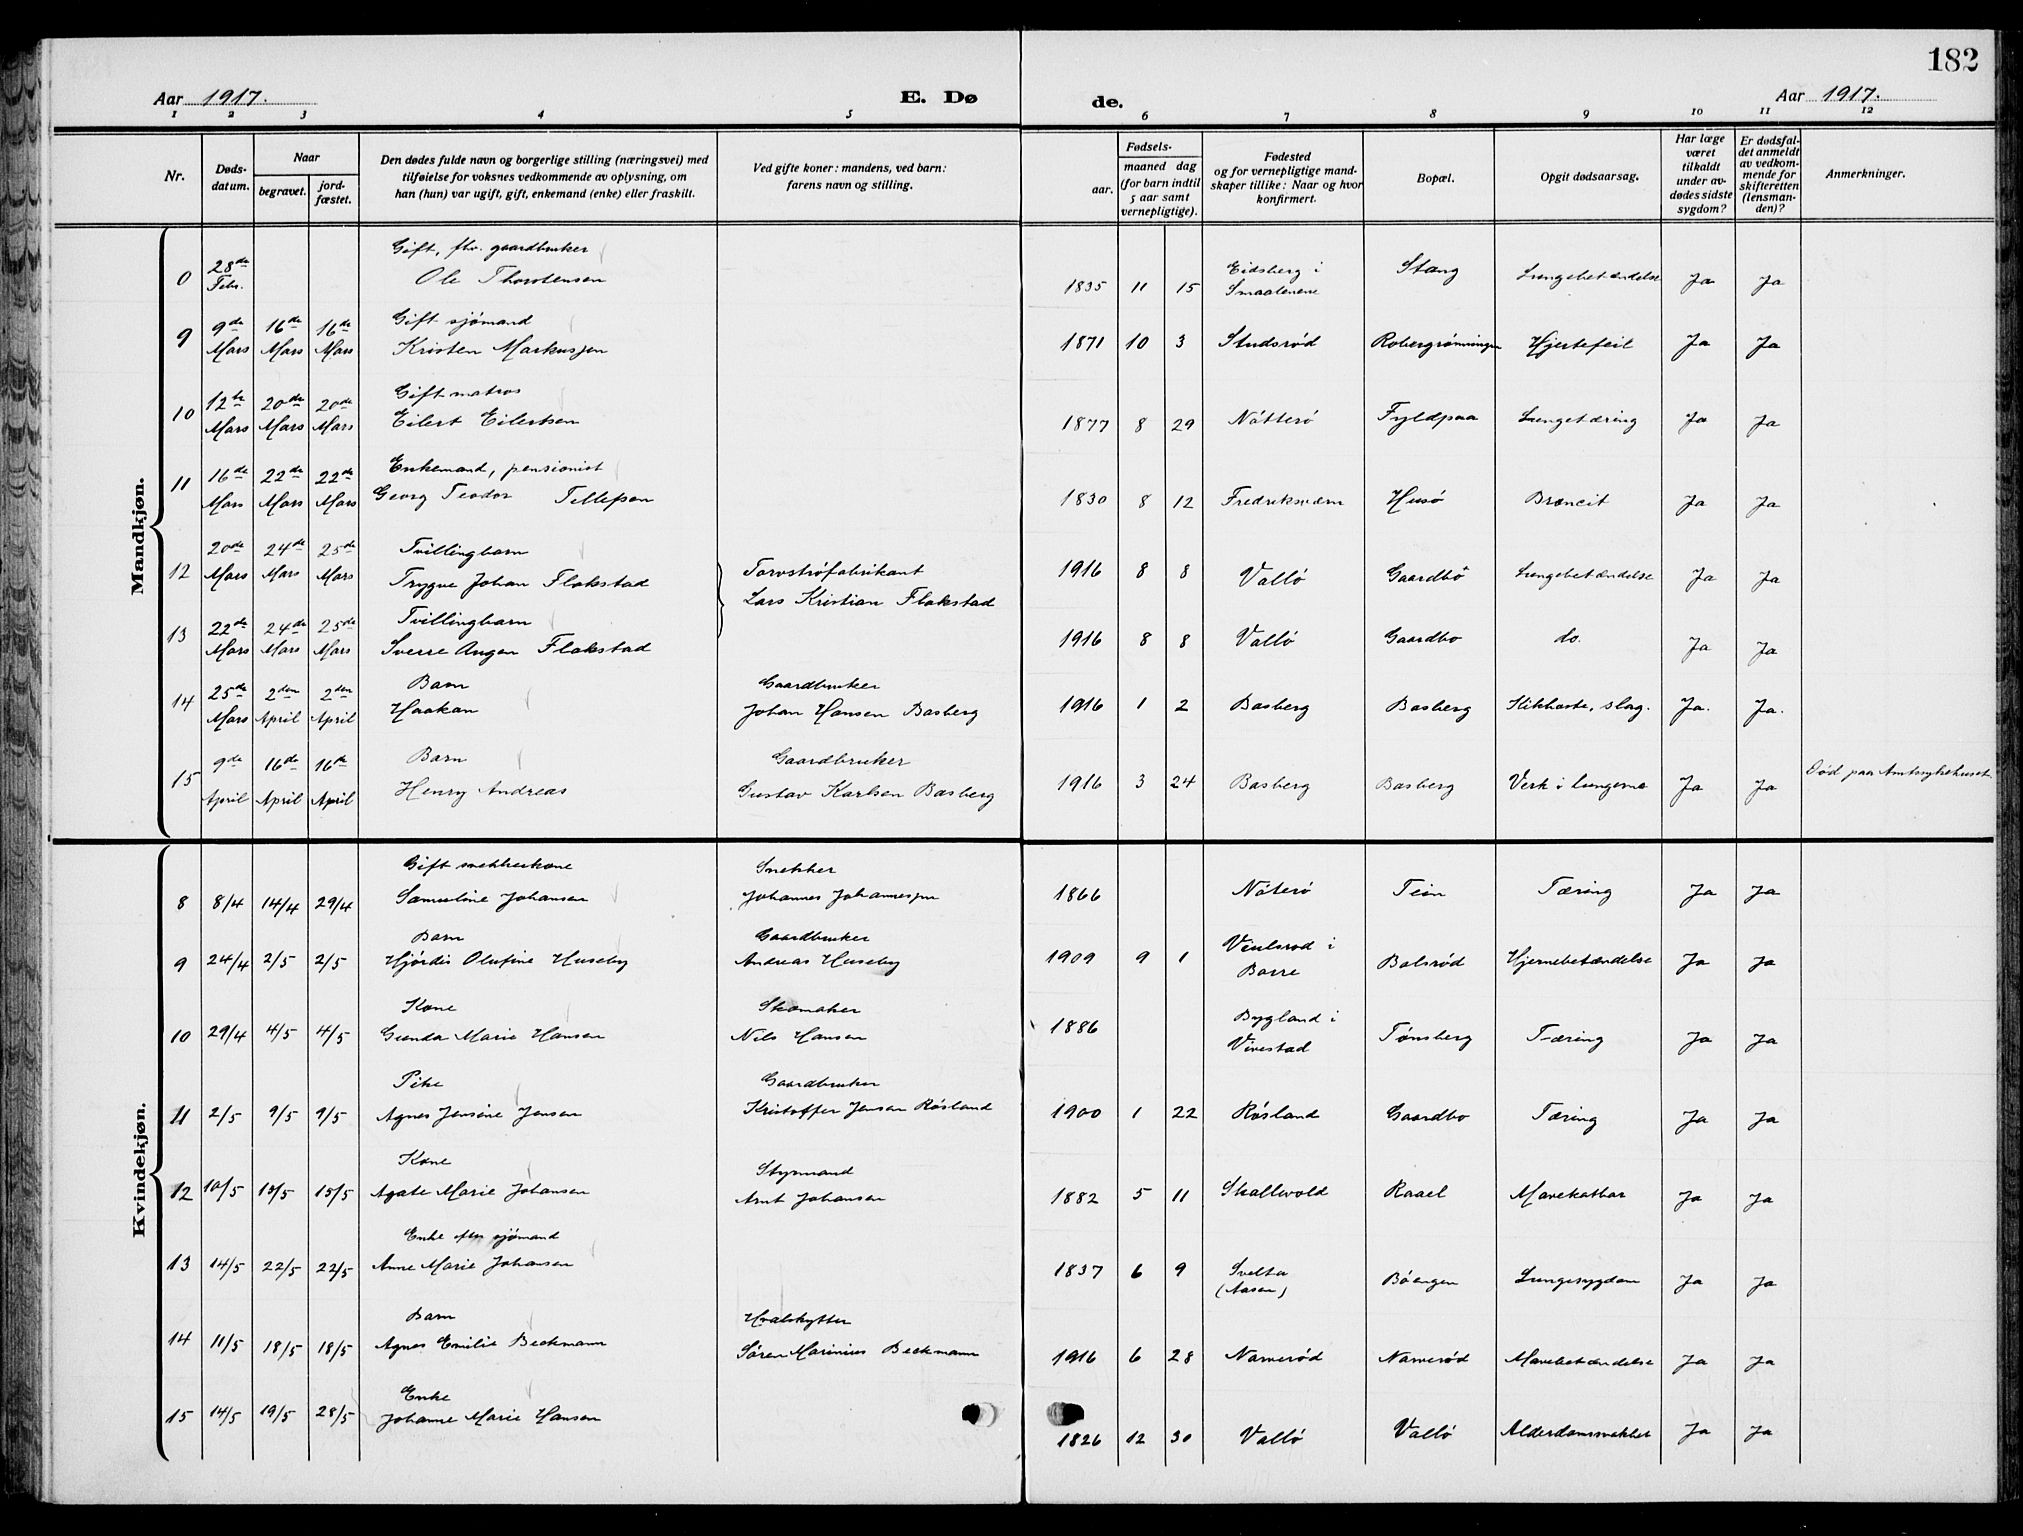 182
Aar 1917. E. Dø de. Aar 1917.
1 2 3 4 5 6 7 8 9 10 11 12
Nr.
Døds-
datum.
Naar
begravet.
jord-
fæstet.
Den dødes fulde navn og borgerlige stilling (næringsvei) med
tilføielse for voksnes vedkommende av oplysning, om
han (hun) var ugift, gift, enkemand (enke) eller fraskilt.
Ved gifte koner: mandens, ved barn:
farens navn og stilling.
Fødsels-
aar.
maaned dag
(for barn indtil
5 aar samt
vernepligtige).
Fødested
og for vernepligtige mand-
skaper tillike: Naar og hvor
konfirmert.
Bopæl.
Opgit dødsaarsag.
Har læge
været
tilkaldt
under av-
dødes sidste
sygdom?
Er dødsfal-
det anmeldt
av vedkom-
mende for
skifteretten
(lensman-
den)?
Anmerkninger.
Mandkjøn.
Gift, fhv. gaardbruker
0 28de Febr. Ole Thorstensen 1835 11 15 Eidsberg i Smaalenene Stang Lungebetændelse Ja Ja
Gift sjömand
9 9de Mars 16de Mars 16de Mars Kristen Markussen 1871 10 3 Studsröd Robergrönningen Hjertefeil Ja Ja
Gift matros
10 12te Mars 20de Mars 20de Mars Eilert Eilertsen 1877 8 29 Nötterö Fyldpaa Lungetæring Ja Ja
Enkemand, pensionist
11 16de Mars 22de Mars 22de Mars Georg Teodor Tellefsen 1830 8 12 Fredriksværn Husö Broncit Ja Ja
Tvillingbarn
12 20de Mars 24de Mars 25de Mars Trygve Johan Flakstad Torvströfabrikant 1916 8 8 Vallö Gaardbo Lungebetændelse Ja Ja
Lars Kristian Flakstad
Tvillingbarn
13 22de Mars 24de Mars 25de Mars Sverre Flakstad 1916 8 8 Vallö Gaardbo do. Ja Ja
Barn Gaardbruker
14 25de Mars 2den April 2den April Haakan Johan Hansen Basberg 1916 1 2 Basberg Basberg Kikhoste, slag. Ja. Ja.
Barn Gaardbruker
15 9de April 16de April 16de April Henry Andreas Gustav Karlsen Basberg 1916 3 24 Basberg Basberg Verk i lungerne Ja Ja Död paa Amtssykehuset
Kvindekjøn.
Gift snekkerkone Snekker
8 8/4 14/4 29/4 Samueline Johansen Johannes Johannessen 1866 Nöterö Teien Tæring Ja Ja
Barn Gaardbruker
9 24/4 2/5 2/5 Hjördis Olufine Huseby Andreas Huseby 1909 9 1 i Borre Bolsröd Hjernebetændelse Ja Ja
Kone Skomaker
10 29/4 4/5 4/5 Gunda Marie Hansen Nils Hansen 1886 Bygland i Vivestad Tönsberg Tæring Ja Ja
Pike Gaardbruker
11 2/5 9/5 9/5 Agnes Jensine Jensen Kristoffer Jensen Rösland 1900 1 22 Rösland Gaardbo Tæring Ja Ja
Kone Styrmand
12 10/5 15/5 15/5 Agate Marie Johansen Arnt Johansen 1882 5 11 Skallevold Raael Mavekathar Ja Ja
Enke efter sjömand
13 14/5 22/5 22/5 Anne Marie Johansen 1837 6 9 Svelta (Aasen) Böengen Lungesygdom Ja Ja
Barn Hvalskytter
14 11/5 18/5 18/5 Agnes Emilie Beckmann Sören Marinius Beckmann 1916 6 28 Narveröd Narveröd Mavebetændelse Ja Ja
Enke
15 14/5 19/5 28/5 Johanne Marie Hansen 1826 12 30 Vallö Vallö Alderdomssvakhet Ja Ja